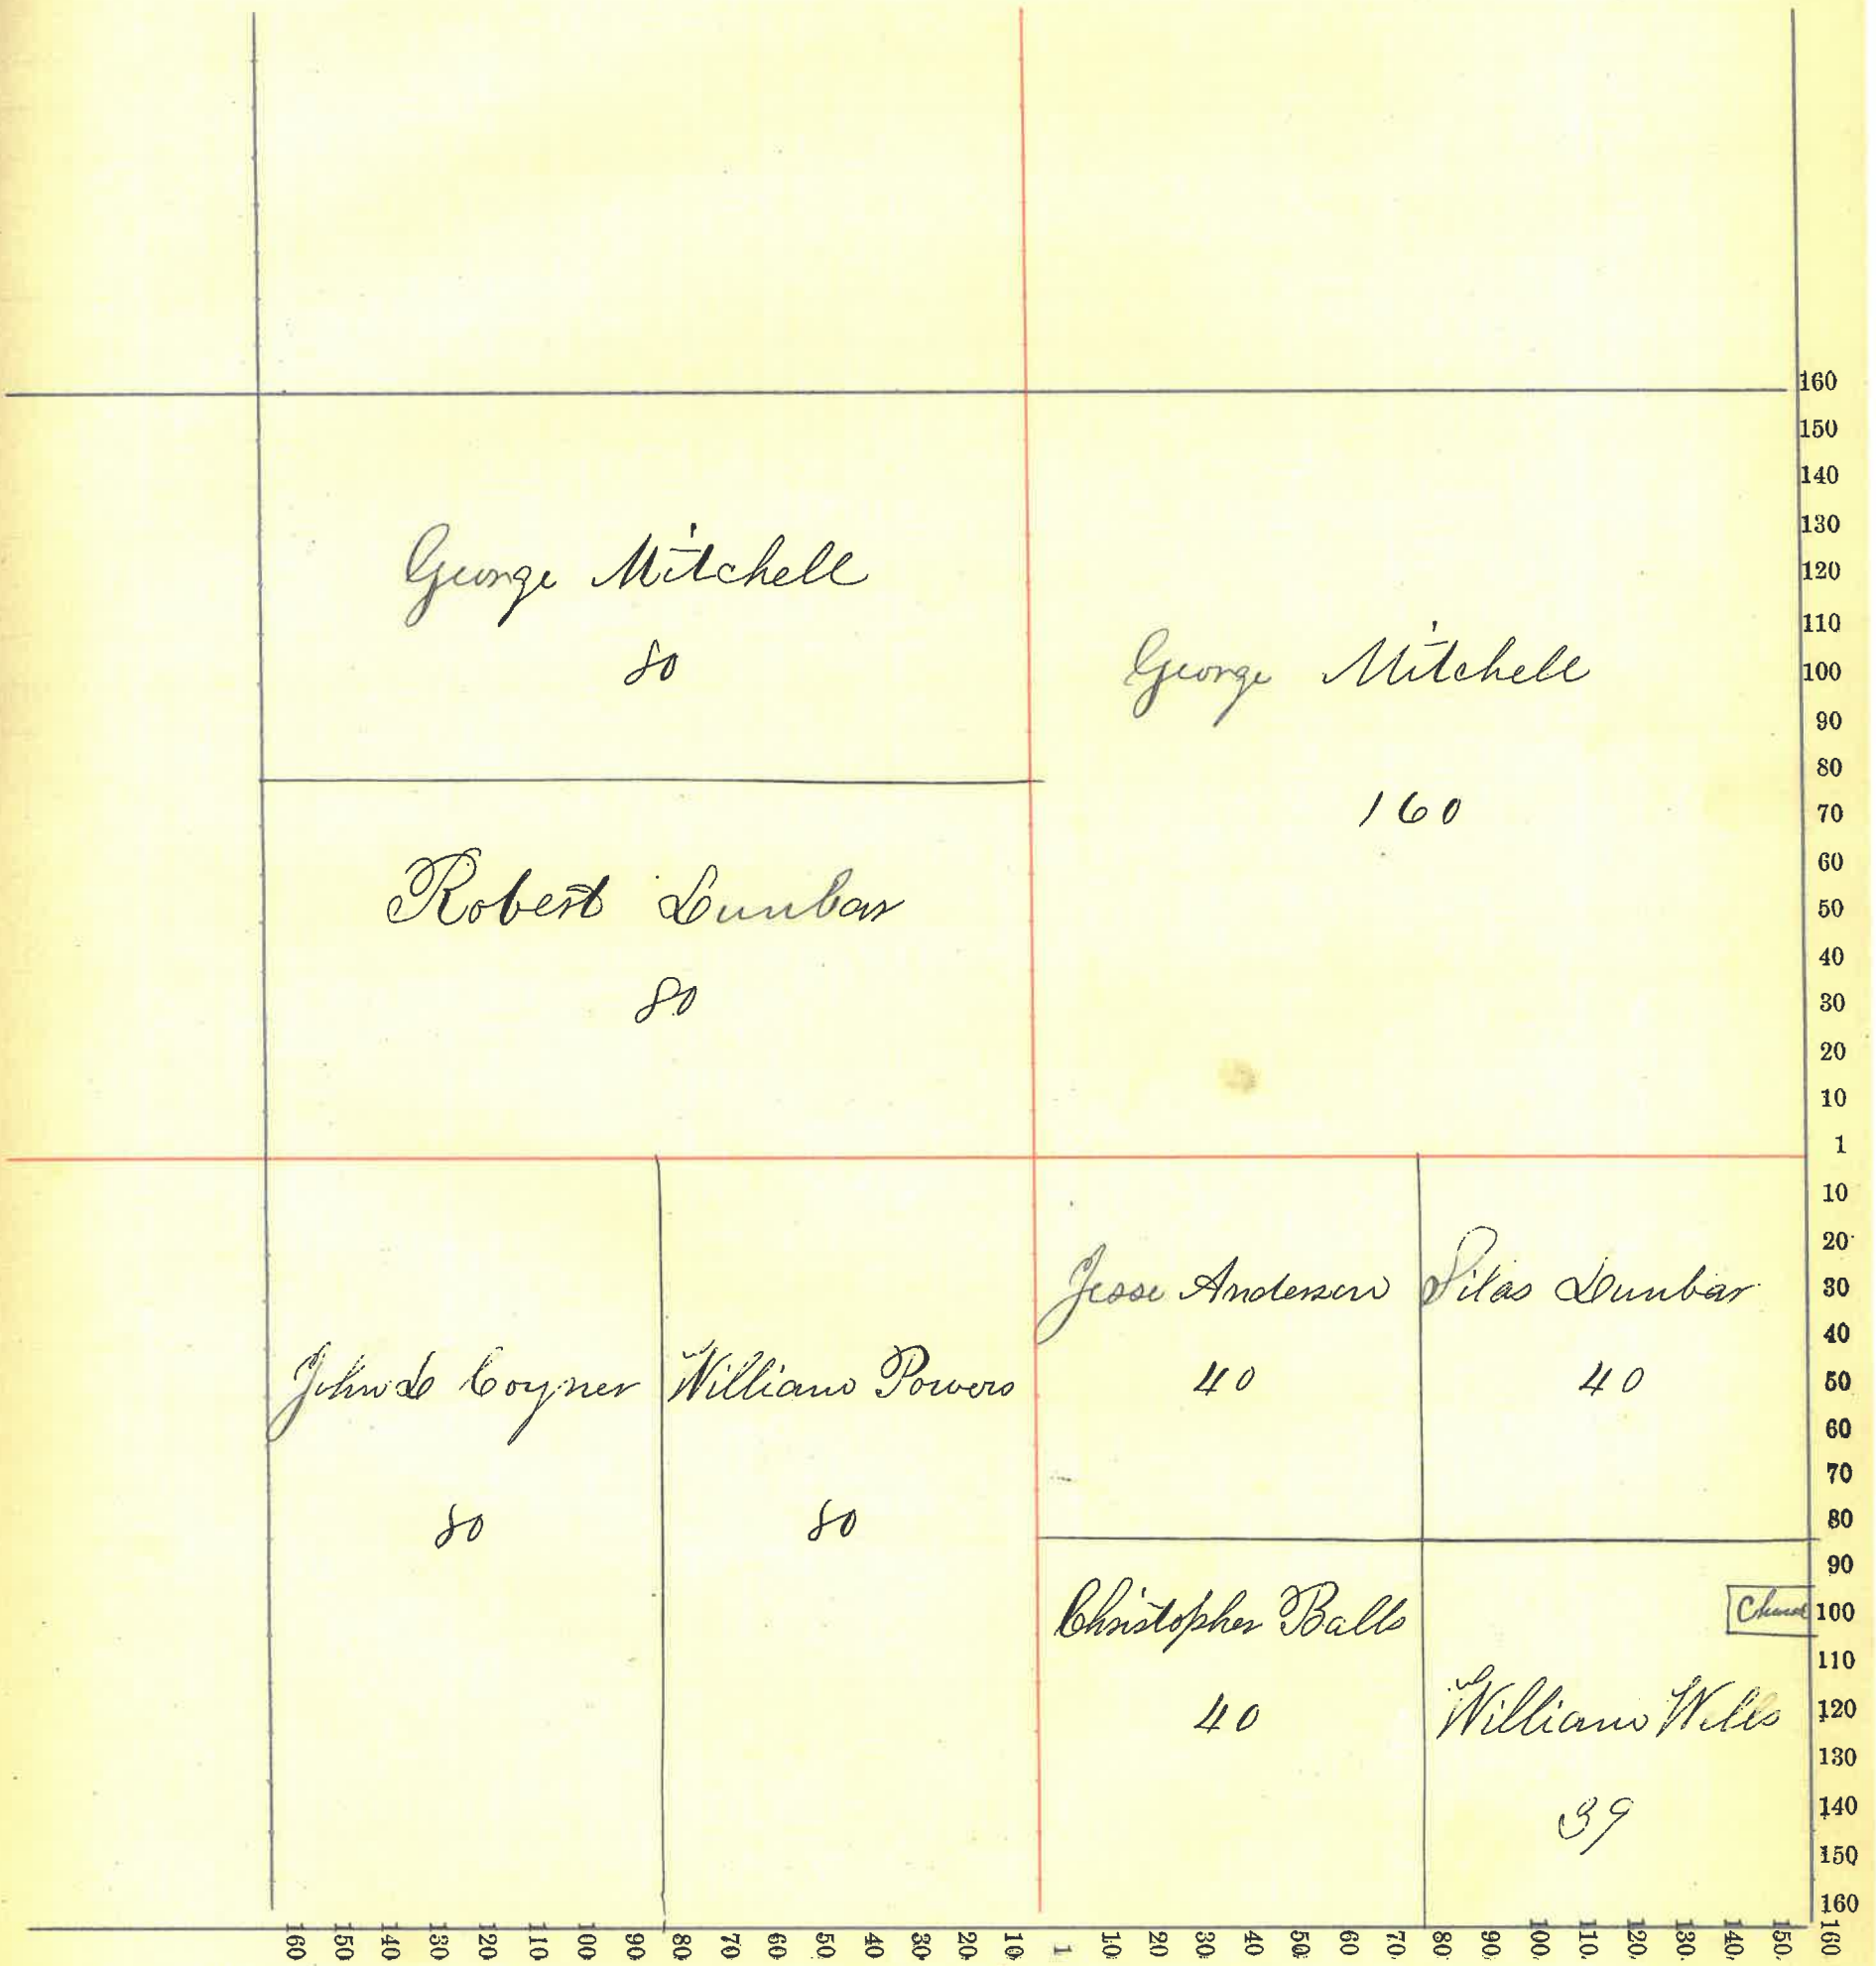 George Mitchell
80
George Mitchell
160
Robert Dunbar
80
John L Coyner
80
William Powers
80
Jesse Anderson
40
Silas Dunbar
40
Christopher Balls
40
Church
William Wells
39
160
150
140
130
120
110
100
90
80
70
60
50
40
30
20
10
1
10
20
30
40
50
60
70
80
90
100
110
120
130
140
150
160
60 50 40 30 20 10 100 90 80 70 60 50 40 30 20 10 1 10 20 30 40 50 60 70 80 90 100 110 120 130 140 150 160